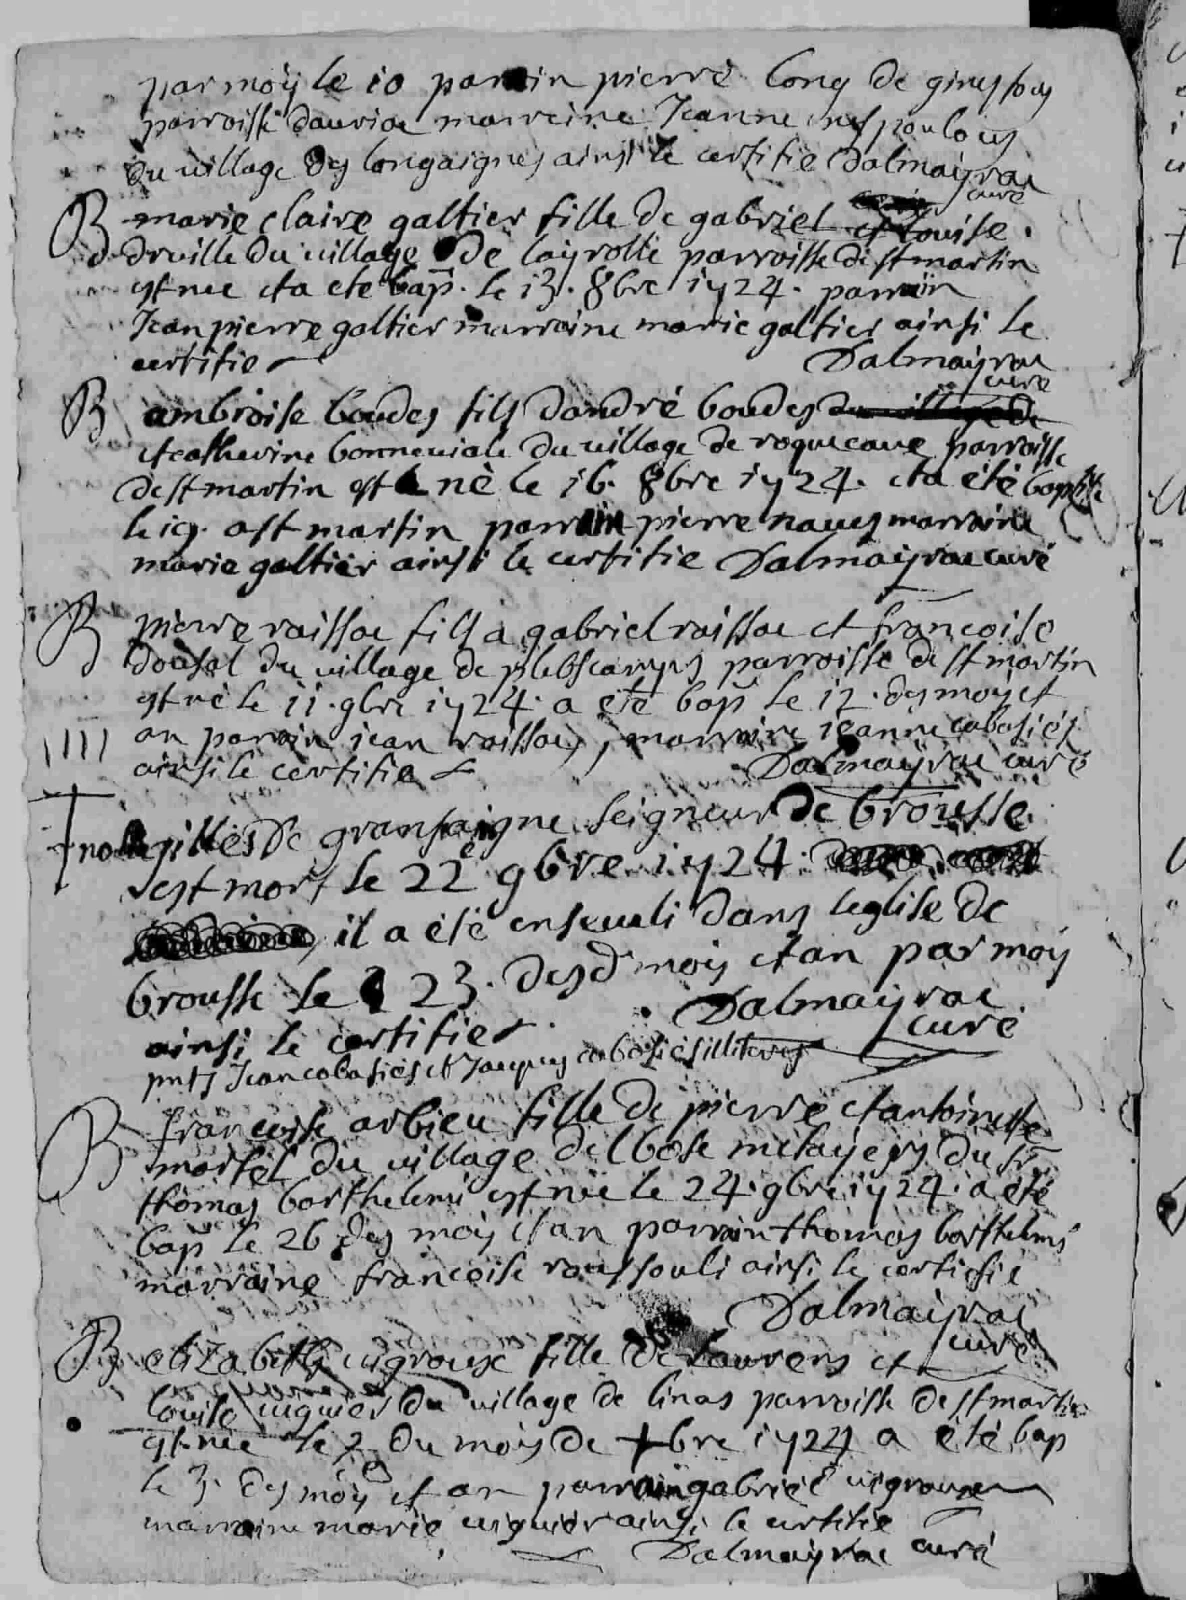 par moÿ le 10 parrin pierre long de
parroisse dauriac marreine Jeanne nespoulous
du village des longaignes ainsi le certifie Dalmaÿrac
curé
B marie claire galtier fille de gabriel et louise
druille du village de layrolle parroisse de st martin
est née et a eté bap. le 13. 8bre 1724. parrin
Jean pierre galtier marraine marie galtier ainsi le
certifie Dalmaÿrac
curé
B ambroise boudes fils dandré boudes du village de
et catherine bonneviale du village de roquecave parroisse
de st martin est né le 16. 8bre 1724. et a été baptisé
le 19. a st martin parrain pierre naves marraine
marie galtier ainsi le certifie Dalmaÿrac curé
B pierre raissac fils a gabriel raissac et francoise
dousal du village de parroisse de st martin
est né le 11. 9bre 1724. a été bap le 12. des moys et
an parrain jean raissac, marraine jeanne cabasiés
ainsi le certifie Dalmaÿrac curé
noble gilles de gransaigne seigneur de brousse
est mort le 22e 9bre 1724.
il a été enseveli dans leglise de
brousse le 23. desd mois et an par moÿ
ainsi le certifie Dalmaÿrac
curé
pnts Jean cabasiés et Jacques cabasiés illiteres
B francoise arbieu fille de pierre et antoinette
martel du village delbosc metayers du sr
thomas barthelemi est née le 24. 9bre 1724. a été
bap le 26 des moÿs et an parrain thomas barthelemi
marraine francoise roussouli ainsi le certifie
Dalmaÿrac
curé
B elizabeth vigroux fille de Laurens et
louise viguier du village de linas parroisse de st martin
est née le 2 du moÿs de Xbre 1724 a été bap
le 3. des moÿs et an parrain gabriel vigroux
marraine marie viguier ainsi le certifie
Dalmaÿrac curé